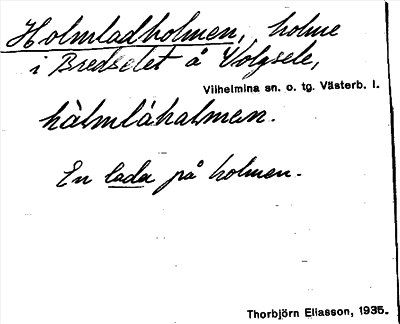 Holmladholmen, holme
i Bredselet å Volgsele,
Vilhelmina sn. o. tg. Västerb. l.
hàlmláhalmen.
En lada på holmen.
Thorbjörn Eliasson, 1935.